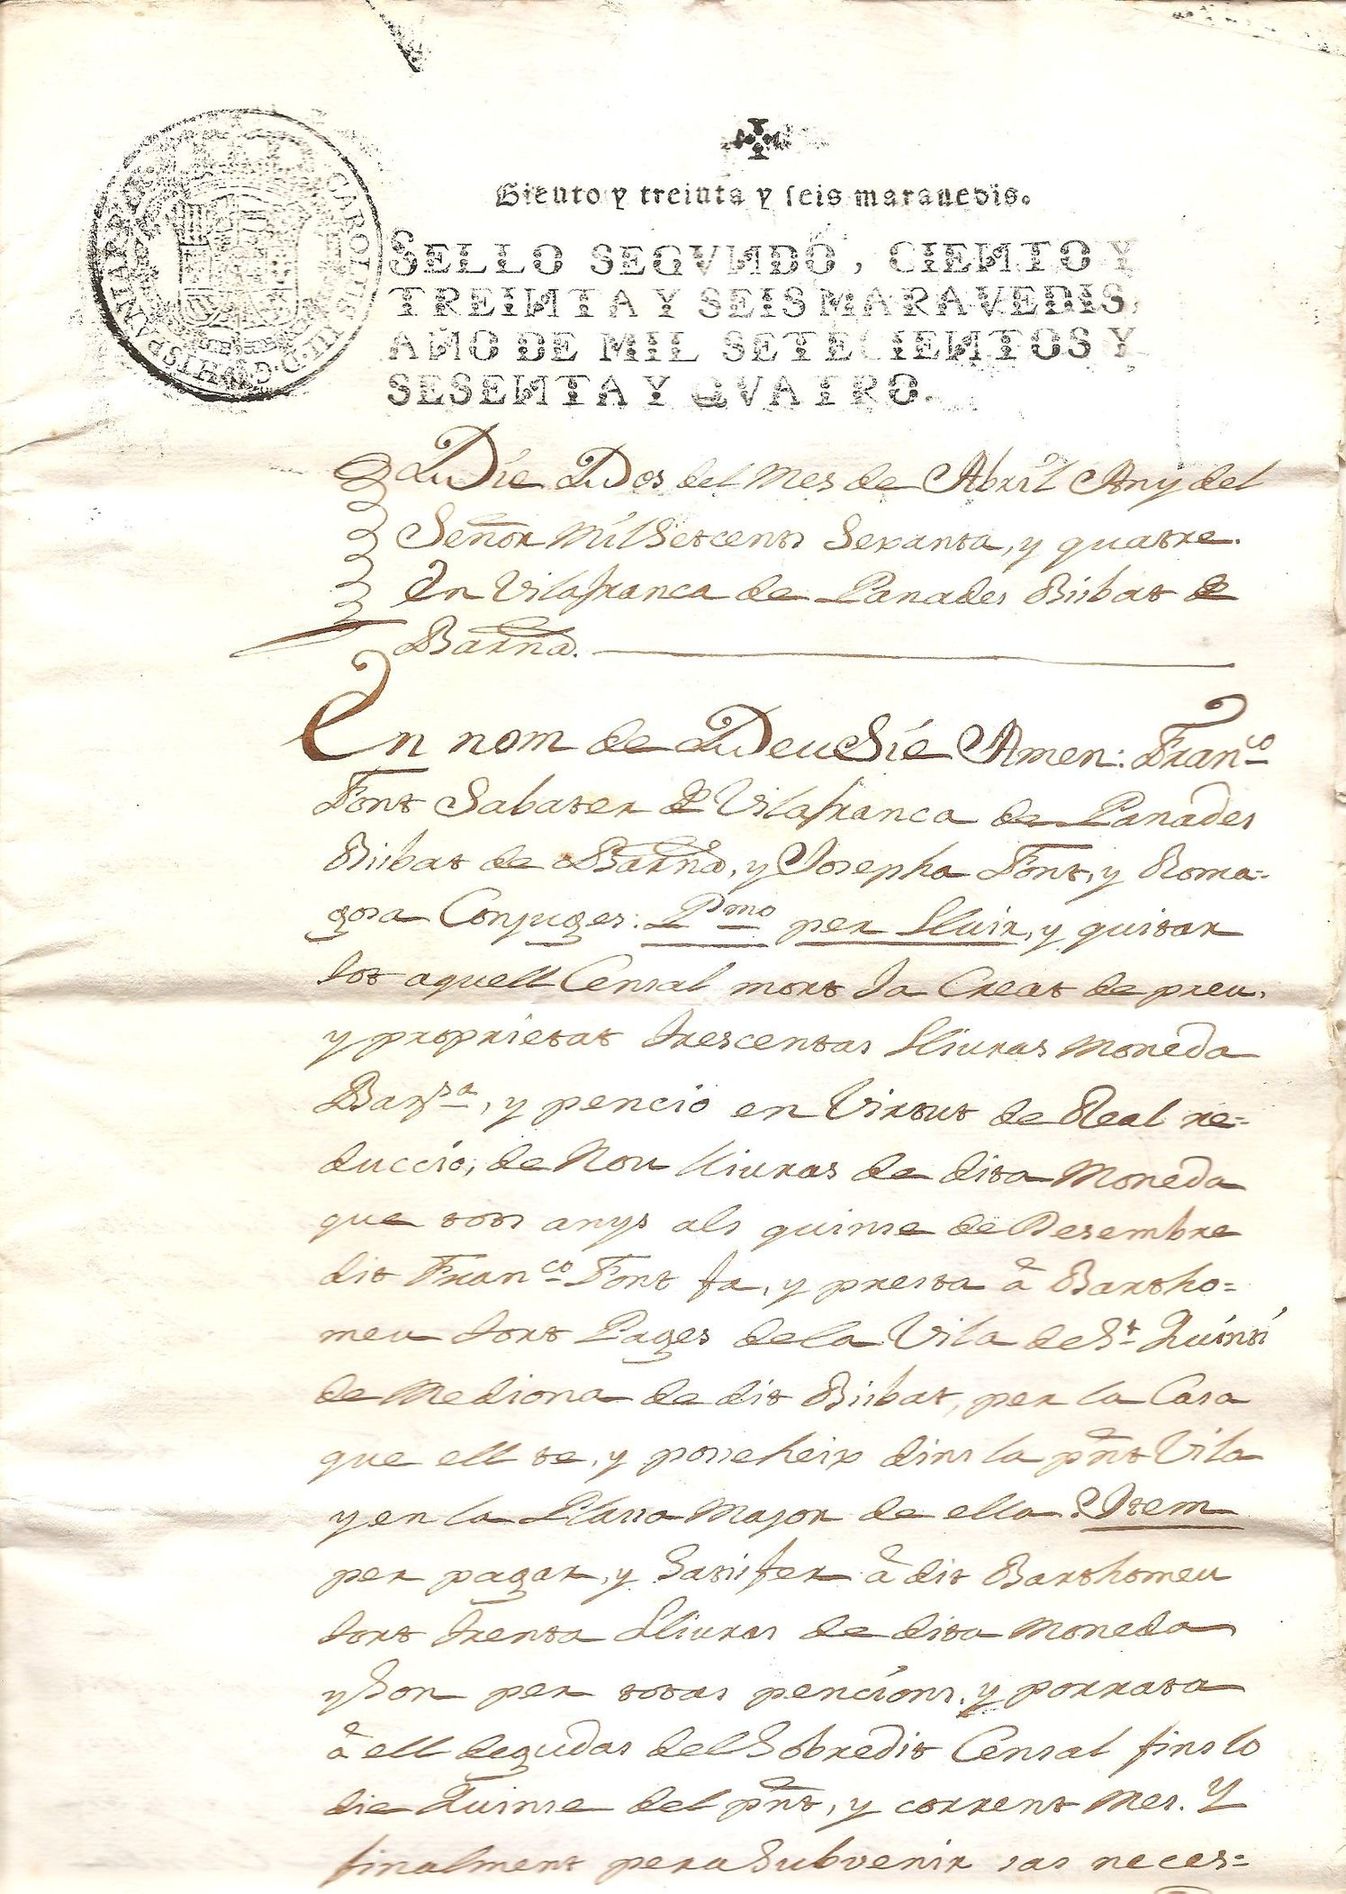 CAROLUS III D G HISPANIAR REX
Ciento y treinta y seis maravedis.
SELLO SEGVNDO, CIENTO Y
TREINTA Y SEIS MARAVEDIS,
AÑO DE MIL SETECIENTOS Y
SESENTA Y QVATRO.
Die Dos del Mes de Abril Any del
Señor Mil Setcents Sexanta, y quatre.
En Vilafranca de Panades Bisbat de
Barña.
En nom de Deu Sie Amen: Franco
Font Sabater de Vilafranca de Panades
Bisbat de Barña, y Josepha Font, y Roma=
gosa Conjuges: Pmo per lluir, y quitar
tot aquell Censal mort ja Creat de preu,
y proprietat trescentas lliuras Moneda
Barsa, y pencio en Virtut de Real re=
duccio, de Nou lliuras de dita Moneda
que tots anys als quinse de Desembre
dit Franco Font fa, y presta à Bartho=
meu tort Pages de la Vila de St Quinti
de Mediona de dit Bisbat, per la Casa
que ell te, y posseheix dins la pñt Vila
y en la Plassa Major de ella: Item
per pagar, y Satisfer à dit Barthomeu
tort trenta lliuras de dita Moneda
y Son per totas pencions, y porrata
à ell degudas del Sobredit Censal fins lo
die Quinse del pñt, y corrent Mes. Y
finalment pera Subvenir sas neces=